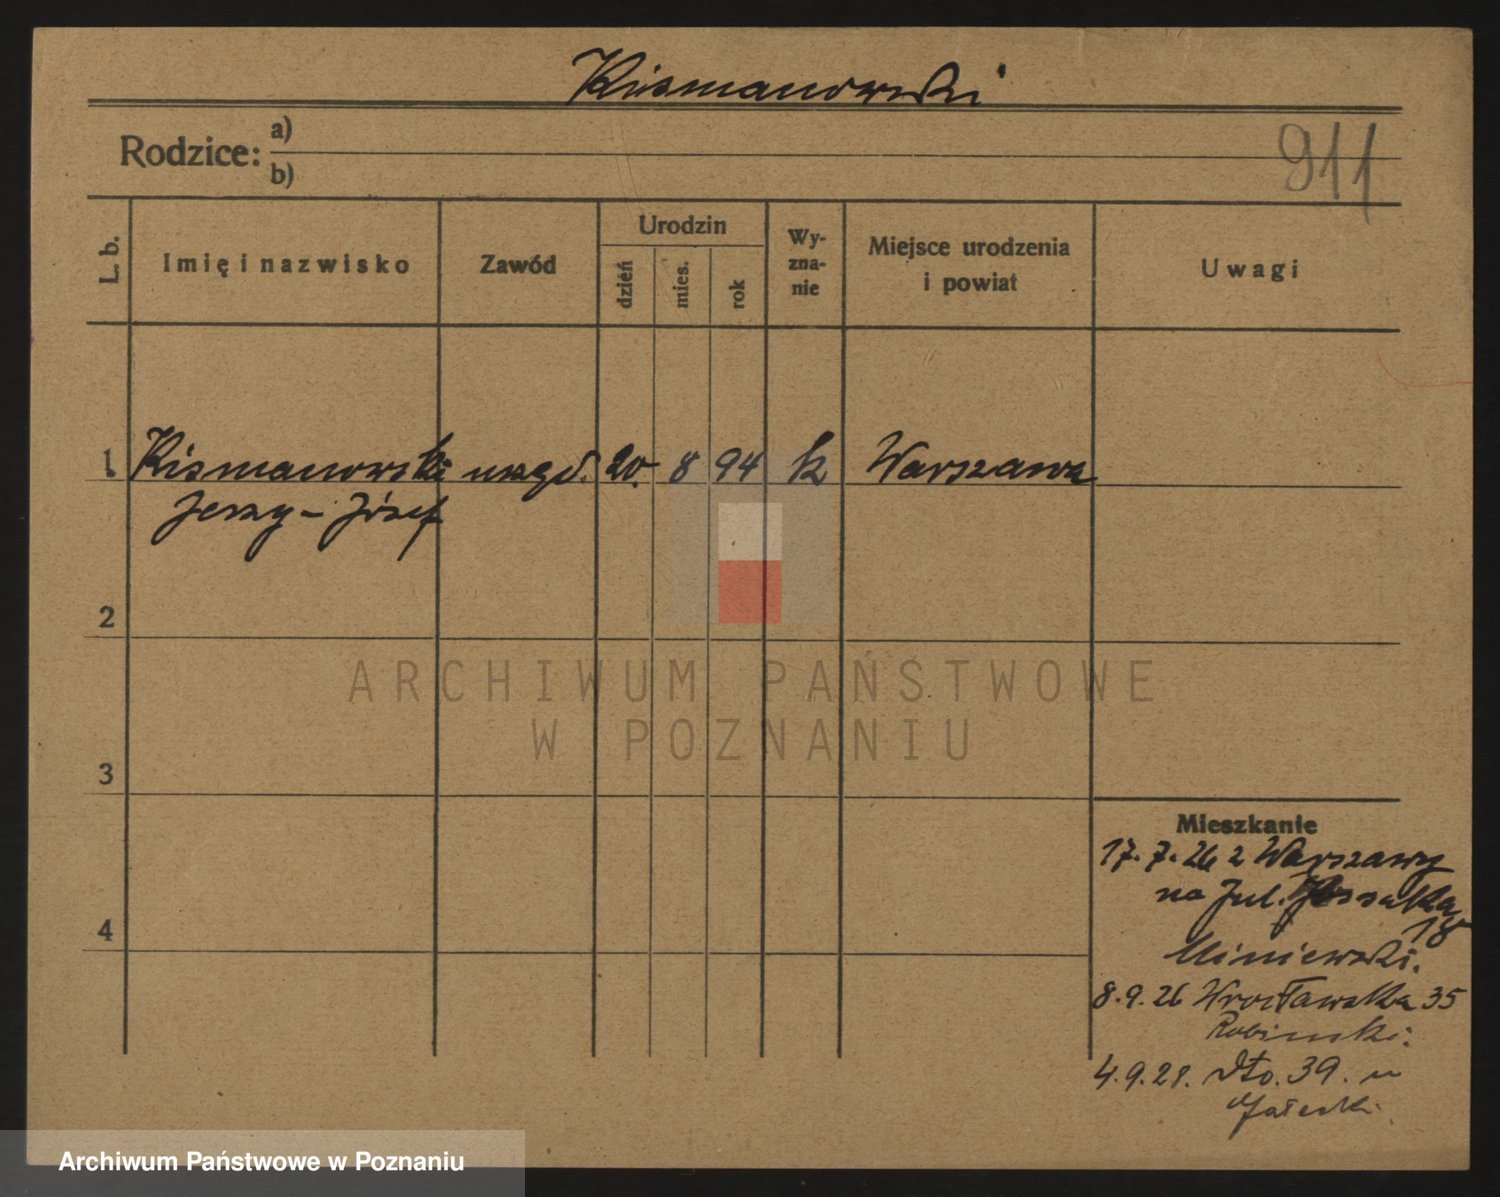 Kismanowski
Rodzice: a)
b)
911
L. b.
Imię i nazwisko
Zawód
Urodzin
dzień
mies.
rok
Wy-
zna-
nie
Miejsce urodzenia
i powiat
Uwagi
1 Kismanowski urzęd. 20. 8 94 k Warszawa
Jerzy - Józef
2
3
4
ARCHIWUM PAŃSTWOWE
W POZNANIU
Mieszkanie
17.7.26 z Warszawy
na Jul. Kossaka
18
Miniewski.
8.9.26 Wrocławska 35
4.9.28. dto. 39. u
Archiwum Państwowe w Poznaniu